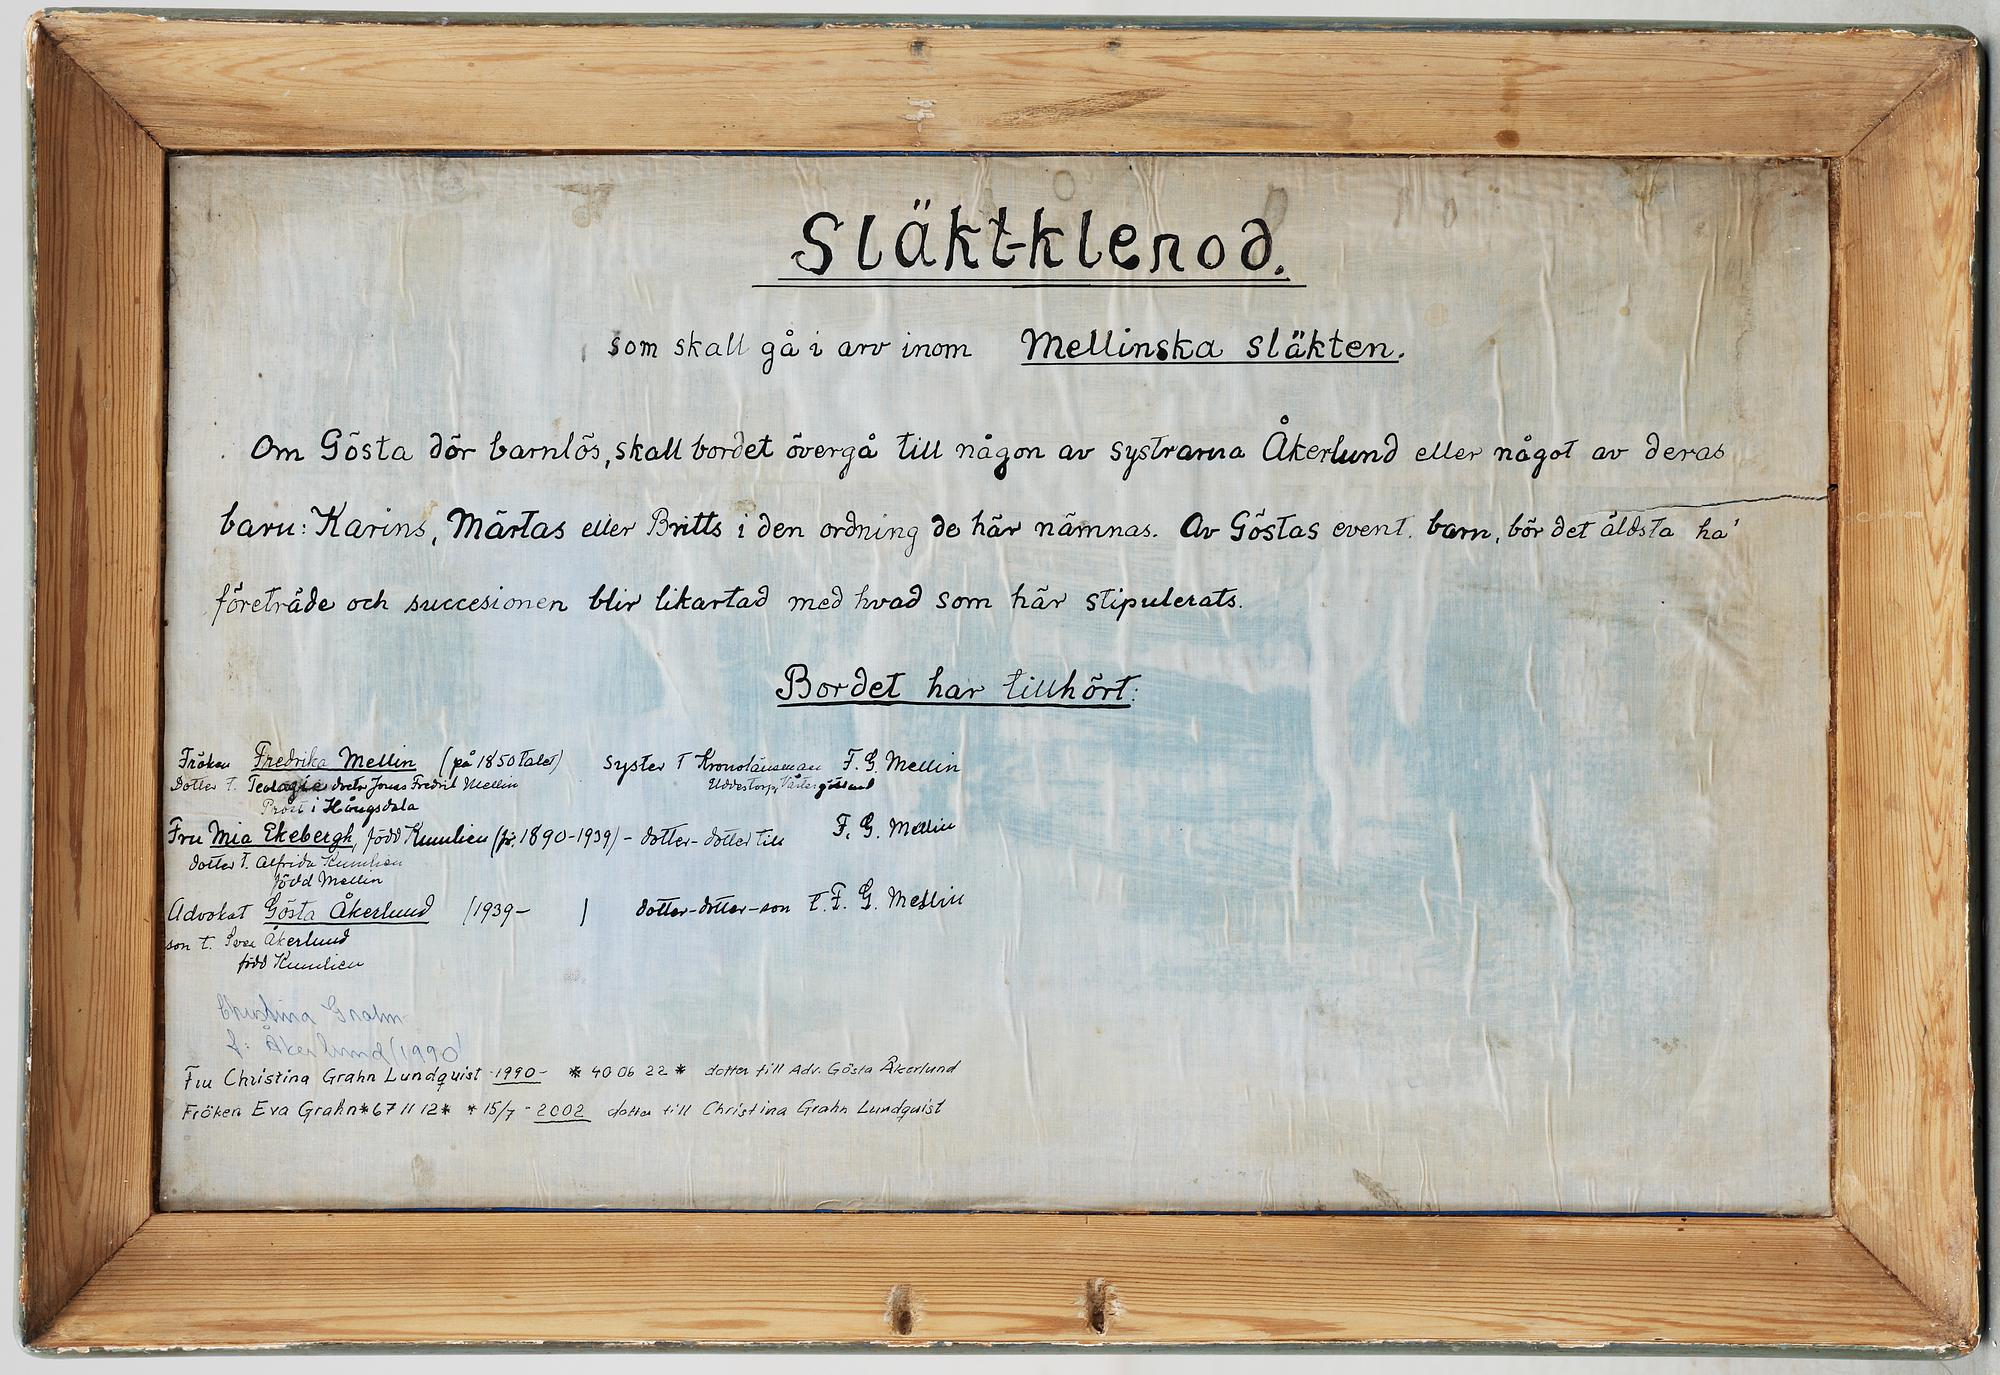 Släkt-klenod.
som skall gå i arv inom Mellinska släkten.
Om Gösta dör barnlös, skall bordet övergå till någon av systrarna Åkerlund eller något av deras
barn: Karins, Märtas eller Britts i den ordning de här nämnas. Av Göstas event. barn, bör det äldsta ha'
företräde och succesionen blir likartad med hvad som här stipulerats.
Bordet har tillhört:
Fröken Fredrika Mellin (på 1850 talet) syster t Kronolänsman F. G. Mellin
Dotter t. Teologie doktr Jonas Fredrik Mellin Uddestorp, Västergötland
Prost i Hångsdala
Fru Mia Ekebergh, född Kumlien (fr. 1890-1939) - dotter-dotter till F. G. Mellin
dotter t. Alfrida Kumlien
född Mellin
Advokat Gösta Åkerlund (1939- ) dotter-dotter-son t. F. G. Mellin
son t. Åkerlund
född Kumlien
Christina Grahn
f: Åkerlund (1990)
Fru Christina Grahn Lundquist 1990- * 40 06 22 * dotter till Adv. Gösta Åkerlund
Fröken Eva Grahn * 67 11 12 * * 15/7 - 2002 dotter till Christina Grahn Lundquist